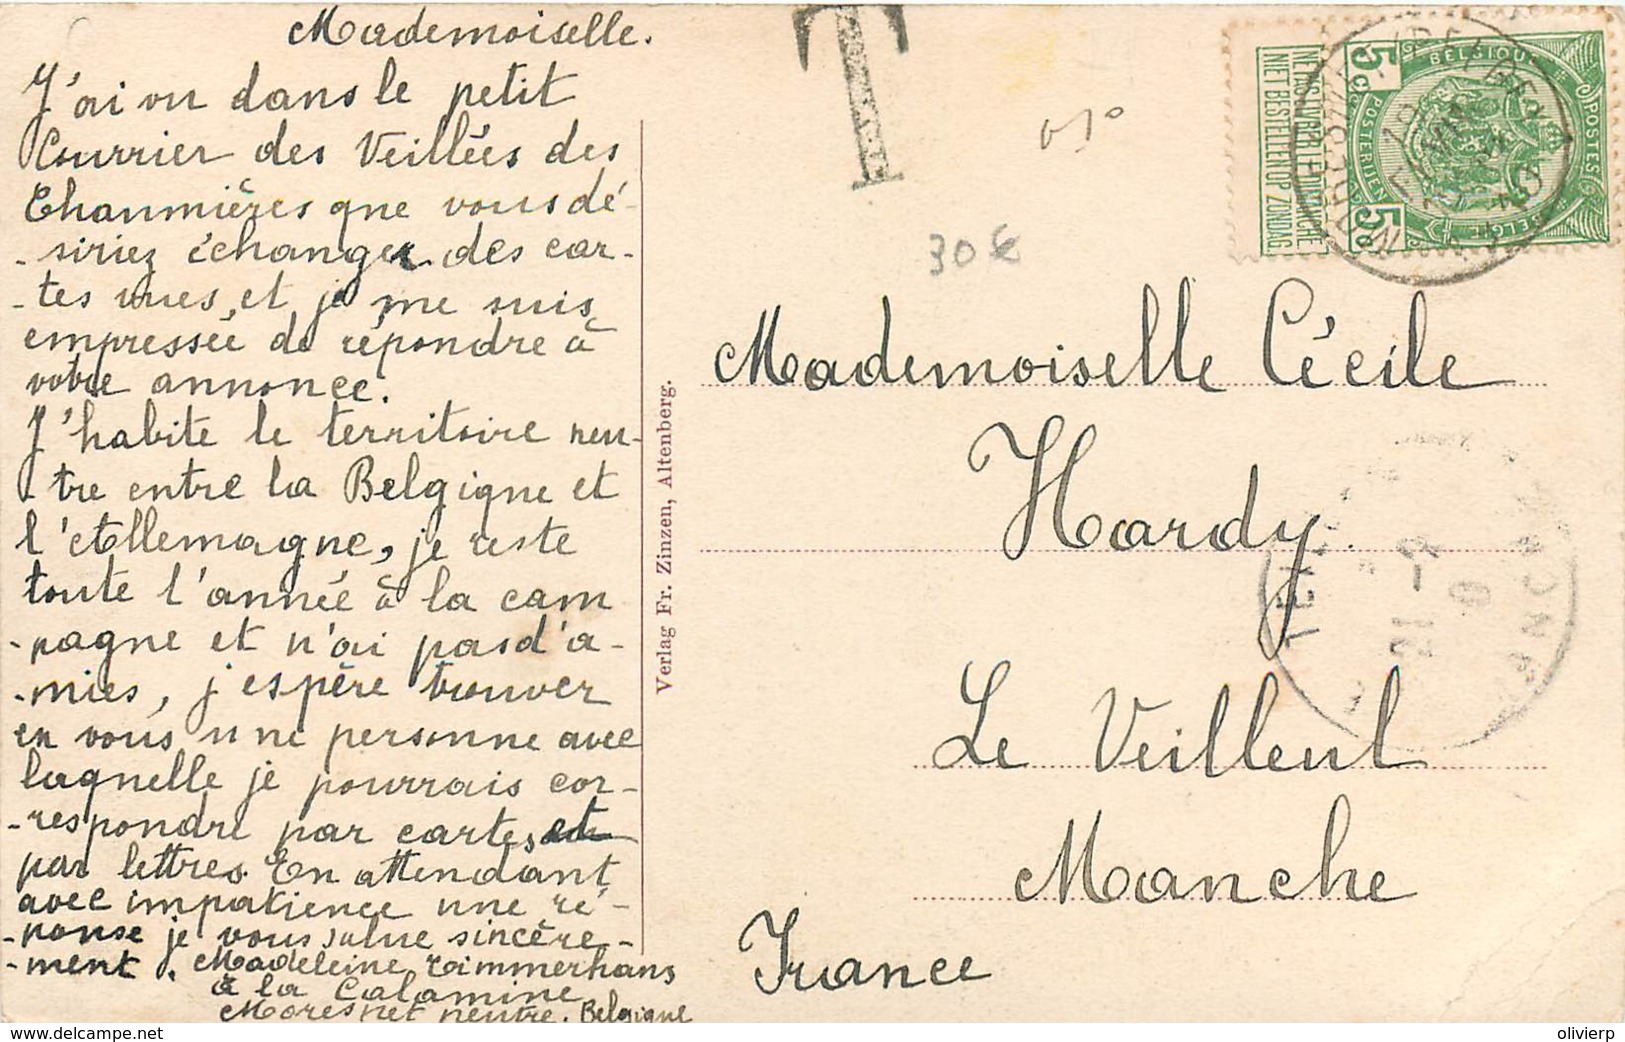 Mademoiselle.
J'ai vu dans le petit
Courrier des Veillées des
Chaumières que vous dé-
-siriez échanger des car-
-tes vues, et je me suis
empressée de répondre à
votre annonce.
J'habite le territoire neu-
-tre entre la Belgique et
l'Allemagne, je reste
toute l'année à la cam
-pagne et n'ai pas d'a-
-mies, j'espère trouver
en vous une personne avec
laquelle je pourrais cor-
-respondre par cartes et
par lettres. En attendant
avec impatience une ré-
-ponse je vous salue sincère-
-ment. Madeleine Timmerhans
à la Calamine
Moresnet neutre. Belgique
Verlag Fr. Zinzen, Altenberg.
T
30€
NE PAS LIVRER LE DIMANCHE
NIET BESTELLEN OP ZONDAG
BELGIQUE
POSTES
POSTERIJEN
BELGIE
5c
5c
Mademoiselle Cécile
Hardy
Le Veillent
Manche
France
21 -9
© delcampe.net
olivierp